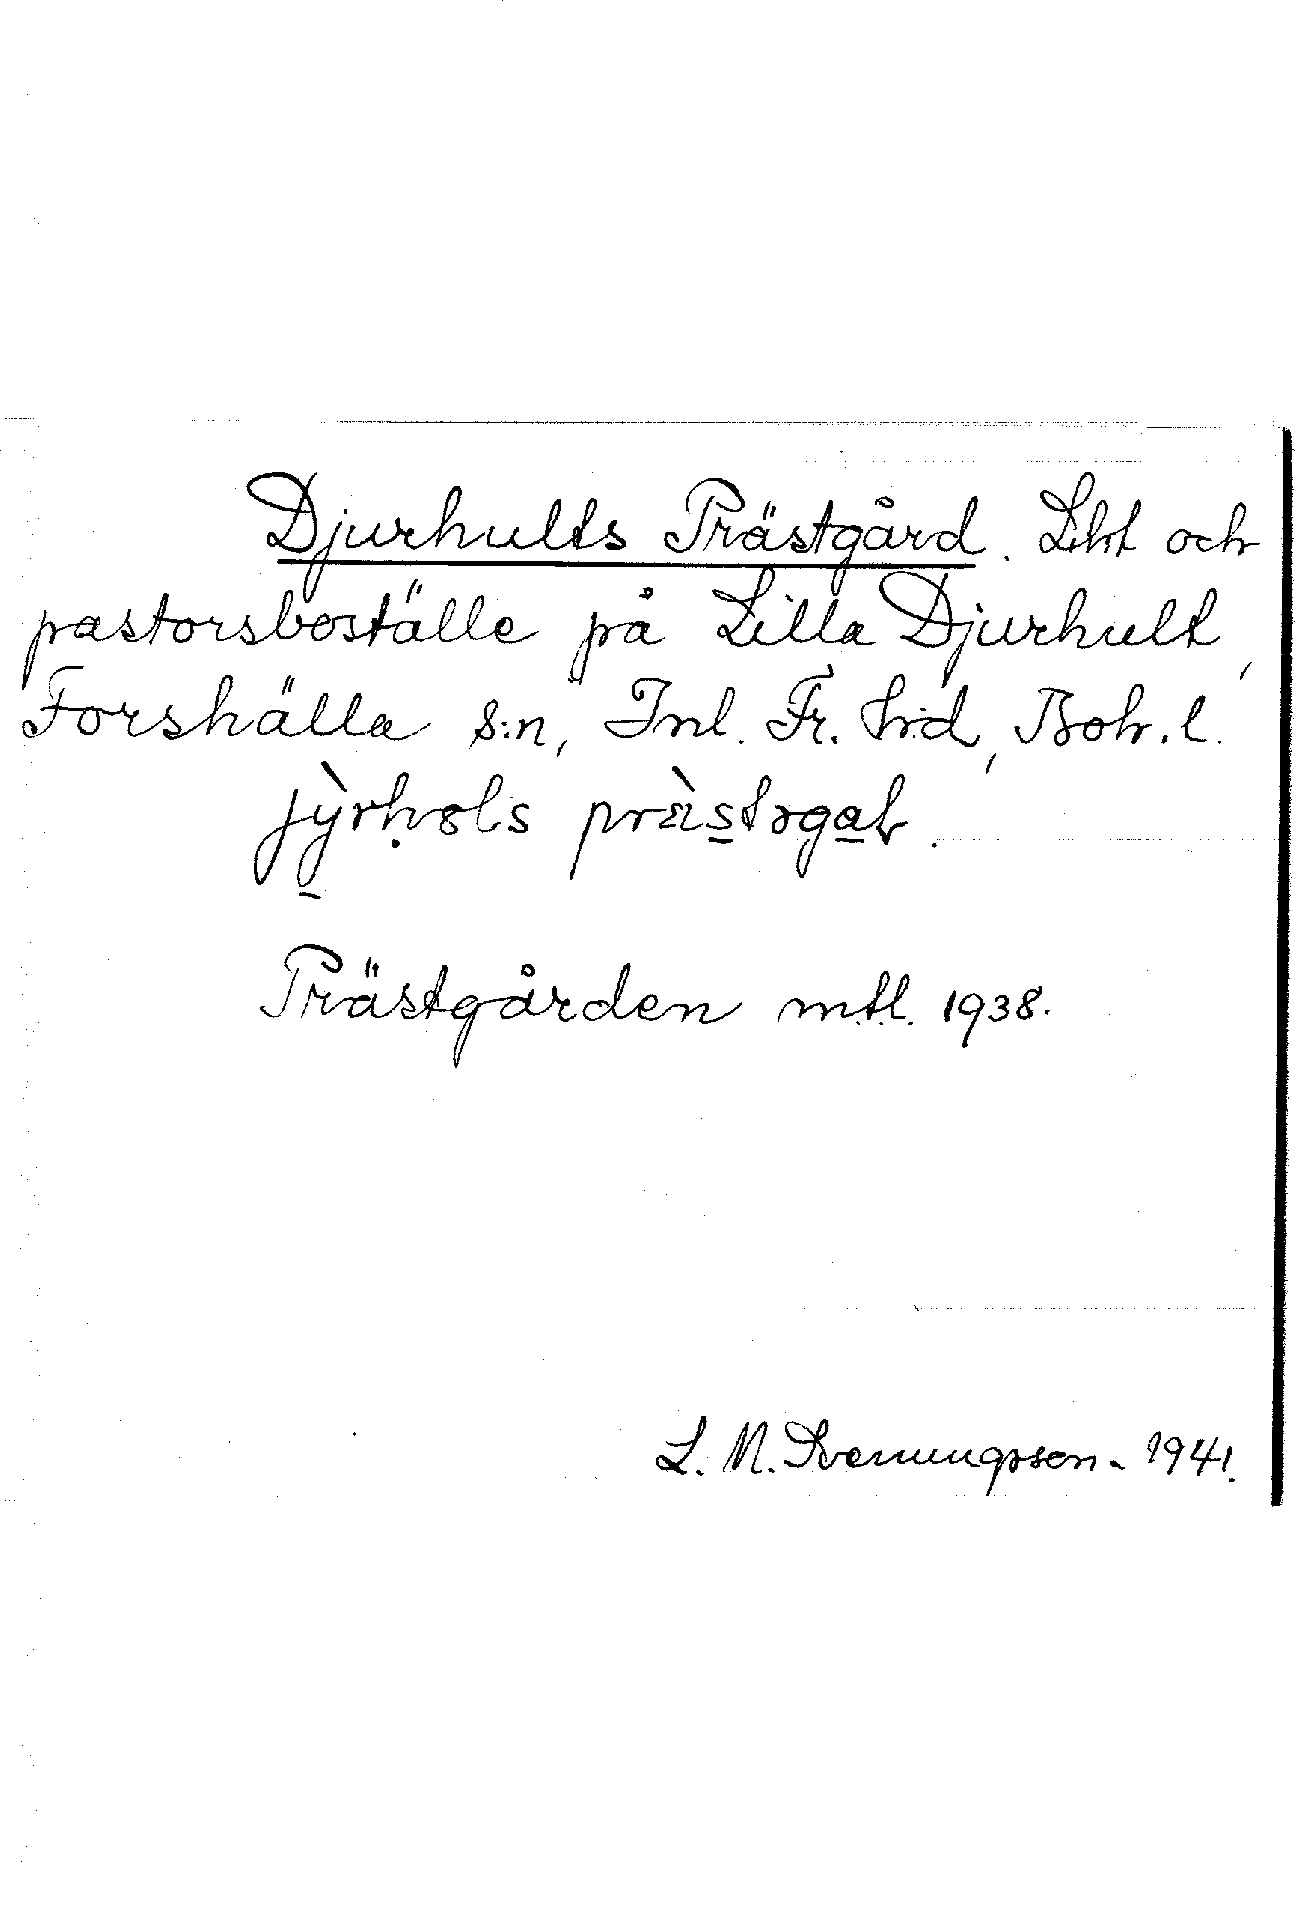 Djurhults Prästgård. Lht och
pastorsboställe på Lilla Djurhult,
Forshälla s:n, Inl. Fr. hrd, Boh. l.
prästgaḷ.
Prästgården mtl. 1938.
L. M. Svenungsson - 1941.